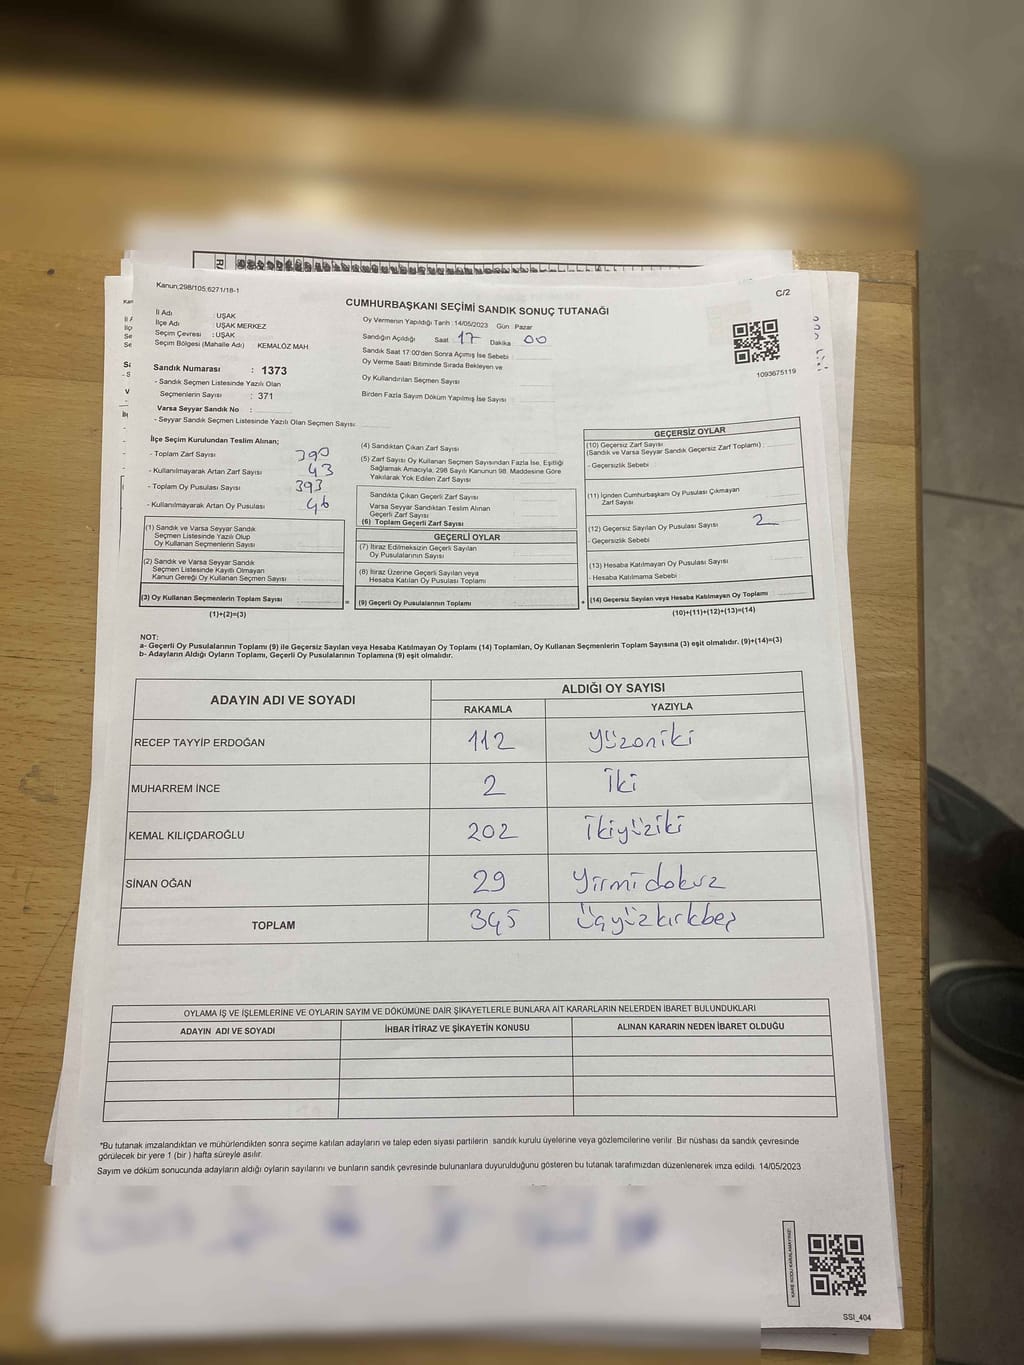 Kanun;298/105;6271/18-1
C/2
CUMHURBAŞKANI SEÇİMİ SANDIK SONUÇ TUTANAĞI
İl Adı : UŞAK
İlçe Adı : UŞAK MERKEZ
Seçim Çevresi : UŞAK
Seçim Bölgesi (Mahalle Adı) KEMALÖZ MAH.
Oy Vermenin Yapıldığı Tarih :14/05/2023 Gün : Pazar
Sandığın Açıldığı Saat 17 Dakika 00
Sandık Saat 17:00'den Sonra Açımış İse Sebebi
Oy Verme Saati Bitiminde Sırada Bekleyen ve
Oy Kullandırılan Seçmen Sayısı
Birden Fazla Sayım Döküm Yapılmış İse Sayısı
1093675119
Sandık Numarası : 1373
- Sandık Seçmen Listesinde Yazılı Olan
Seçmenlerin Sayısı : 371
Varsa Seyyar Sandık No :
- Seyyar Sandık Seçmen Listesinde Yazılı Olan Seçmen Sayısı:
İlçe Seçim Kurulundan Teslim Alınan;
- Toplam Zarf Sayısı 390
- Kullanılmayarak Artan Zarf Sayısı 43
- Toplam Oy Pusulası Sayısı 393
- Kullanılmayarak Artan Oy Pusulası 46
(1) Sandık ve Varsa Seyyar Sandık
Seçmen Listesinde Yazılı Olup
Oy Kullanan Seçmenlerin Sayısı
(2) Sandık ve Varsa Seyyar Sandık
Seçmen Listesinde Kayıtlı Olmayan
Kanun Gereği Oy Kullanan Seçmen Sayısı
(3) Oy Kullanan Seçmenlerin Toplam Sayısı
(1)+(2)=(3)
(4) Sandıktan Çıkan Zarf Sayısı
(5) Zarf Sayısı Oy Kullanan Seçmen Sayısından Fazla İse, Eşitliği
Sağlamak Amacıyla; 298 Sayılı Kanunun 98. Maddesine Göre
Yakılarak Yok Edilen Zarf Sayısı
Sandıkta Çıkan Geçerli Zarf Sayısı
Varsa Seyyar Sandıktan Teslim Alınan
Geçerli Zarf Sayısı
(6) Toplam Geçerli Zarf Sayısı
GEÇERLİ OYLAR
(7) İtiraz Edilmeksizin Geçerli Sayılan
Oy Pusulalarının Sayısı
(8) İtiraz Üzerine Geçerli Sayılan veya
Hesaba Katılan Oy Pusulası Toplamı
= (9) Geçerli Oy Pusulalarının Toplamı
GEÇERSİZ OYLAR
(10) Geçersiz Zarf Sayısı
(Sandık ve Varsa Seyyar Sandık Geçersiz Zarf Toplamı) :
- Geçersizlik Sebebi
(11) İçinden Cumhurbaşkanı Oy Pusulası Çıkmayan
Zarf Sayısı
(12) Geçersiz Sayılan Oy Pusulası Sayısı 2
- Geçersizlik Sebebi
(13) Hesaba Katılmayan Oy Pusulası Sayısı
- Hesaba Katılmama Sebebi
+ (14) Geçersiz Sayılan veya Hesaba Katılmayan Oy Toplamı
(10)+(11)+(12)+(13)=(14)
NOT:
a- Geçerli Oy Pusulalarının Toplamı (9) ile Geçersiz Sayılan veya Hesaba Katılmayan Oy Toplamı (14) Toplamları, Oy Kullanan Seçmenlerin Toplam Sayısına (3) eşit olmalıdır. (9)+(14)=(3)
b- Adayların Aldığı Oyların Toplamı, Geçerli Oy Pusulalarının Toplamına (9) eşit olmalıdır.
ADAYIN ADI VE SOYADI ALDIĞI OY SAYISI
RAKAMLA YAZIYLA
RECEP TAYYİP ERDOĞAN 112 yüzoniki
MUHARREM İNCE 2 İki
KEMAL KILIÇDAROĞLU 202 İkiyüziki
SİNAN OĞAN 29 Yirmidokuz
TOPLAM 345 Üçyüzkırkbeş
OYLAMA İŞ VE İŞLEMLERİNE VE OYLARIN SAYIM VE DÖKÜMÜNE DAİR ŞİKAYETLERLE BUNLARA AİT KARARLARIN NELERDEN İBARET BULUNDUKLARI
ADAYIN ADI VE SOYADI İHBAR İTİRAZ VE ŞİKAYETİN KONUSU ALINAN KARARIN NEDEN İBARET OLDUĞU
*Bu tutanak imzalandıktan ve mühürlendikten sonra seçime katılan adayların ve talep eden siyasi partilerin sandık kurulu üyelerine veya gözlemcilerine verilir. Bir nüshası da sandık çevresinde
görülecek bir yere 1 (bir ) hafta süreyle asılır.
Sayım ve döküm sonucunda adayların aldığı oyların sayılarını ve bunların sandık çevresinde bulunanlara duyurulduğunu gösteren bu tutanak tarafımızdan düzenlenerek imza edildi. 14/05/2023
KARE KODU KARALAMAYINIZ!
SSİ_404